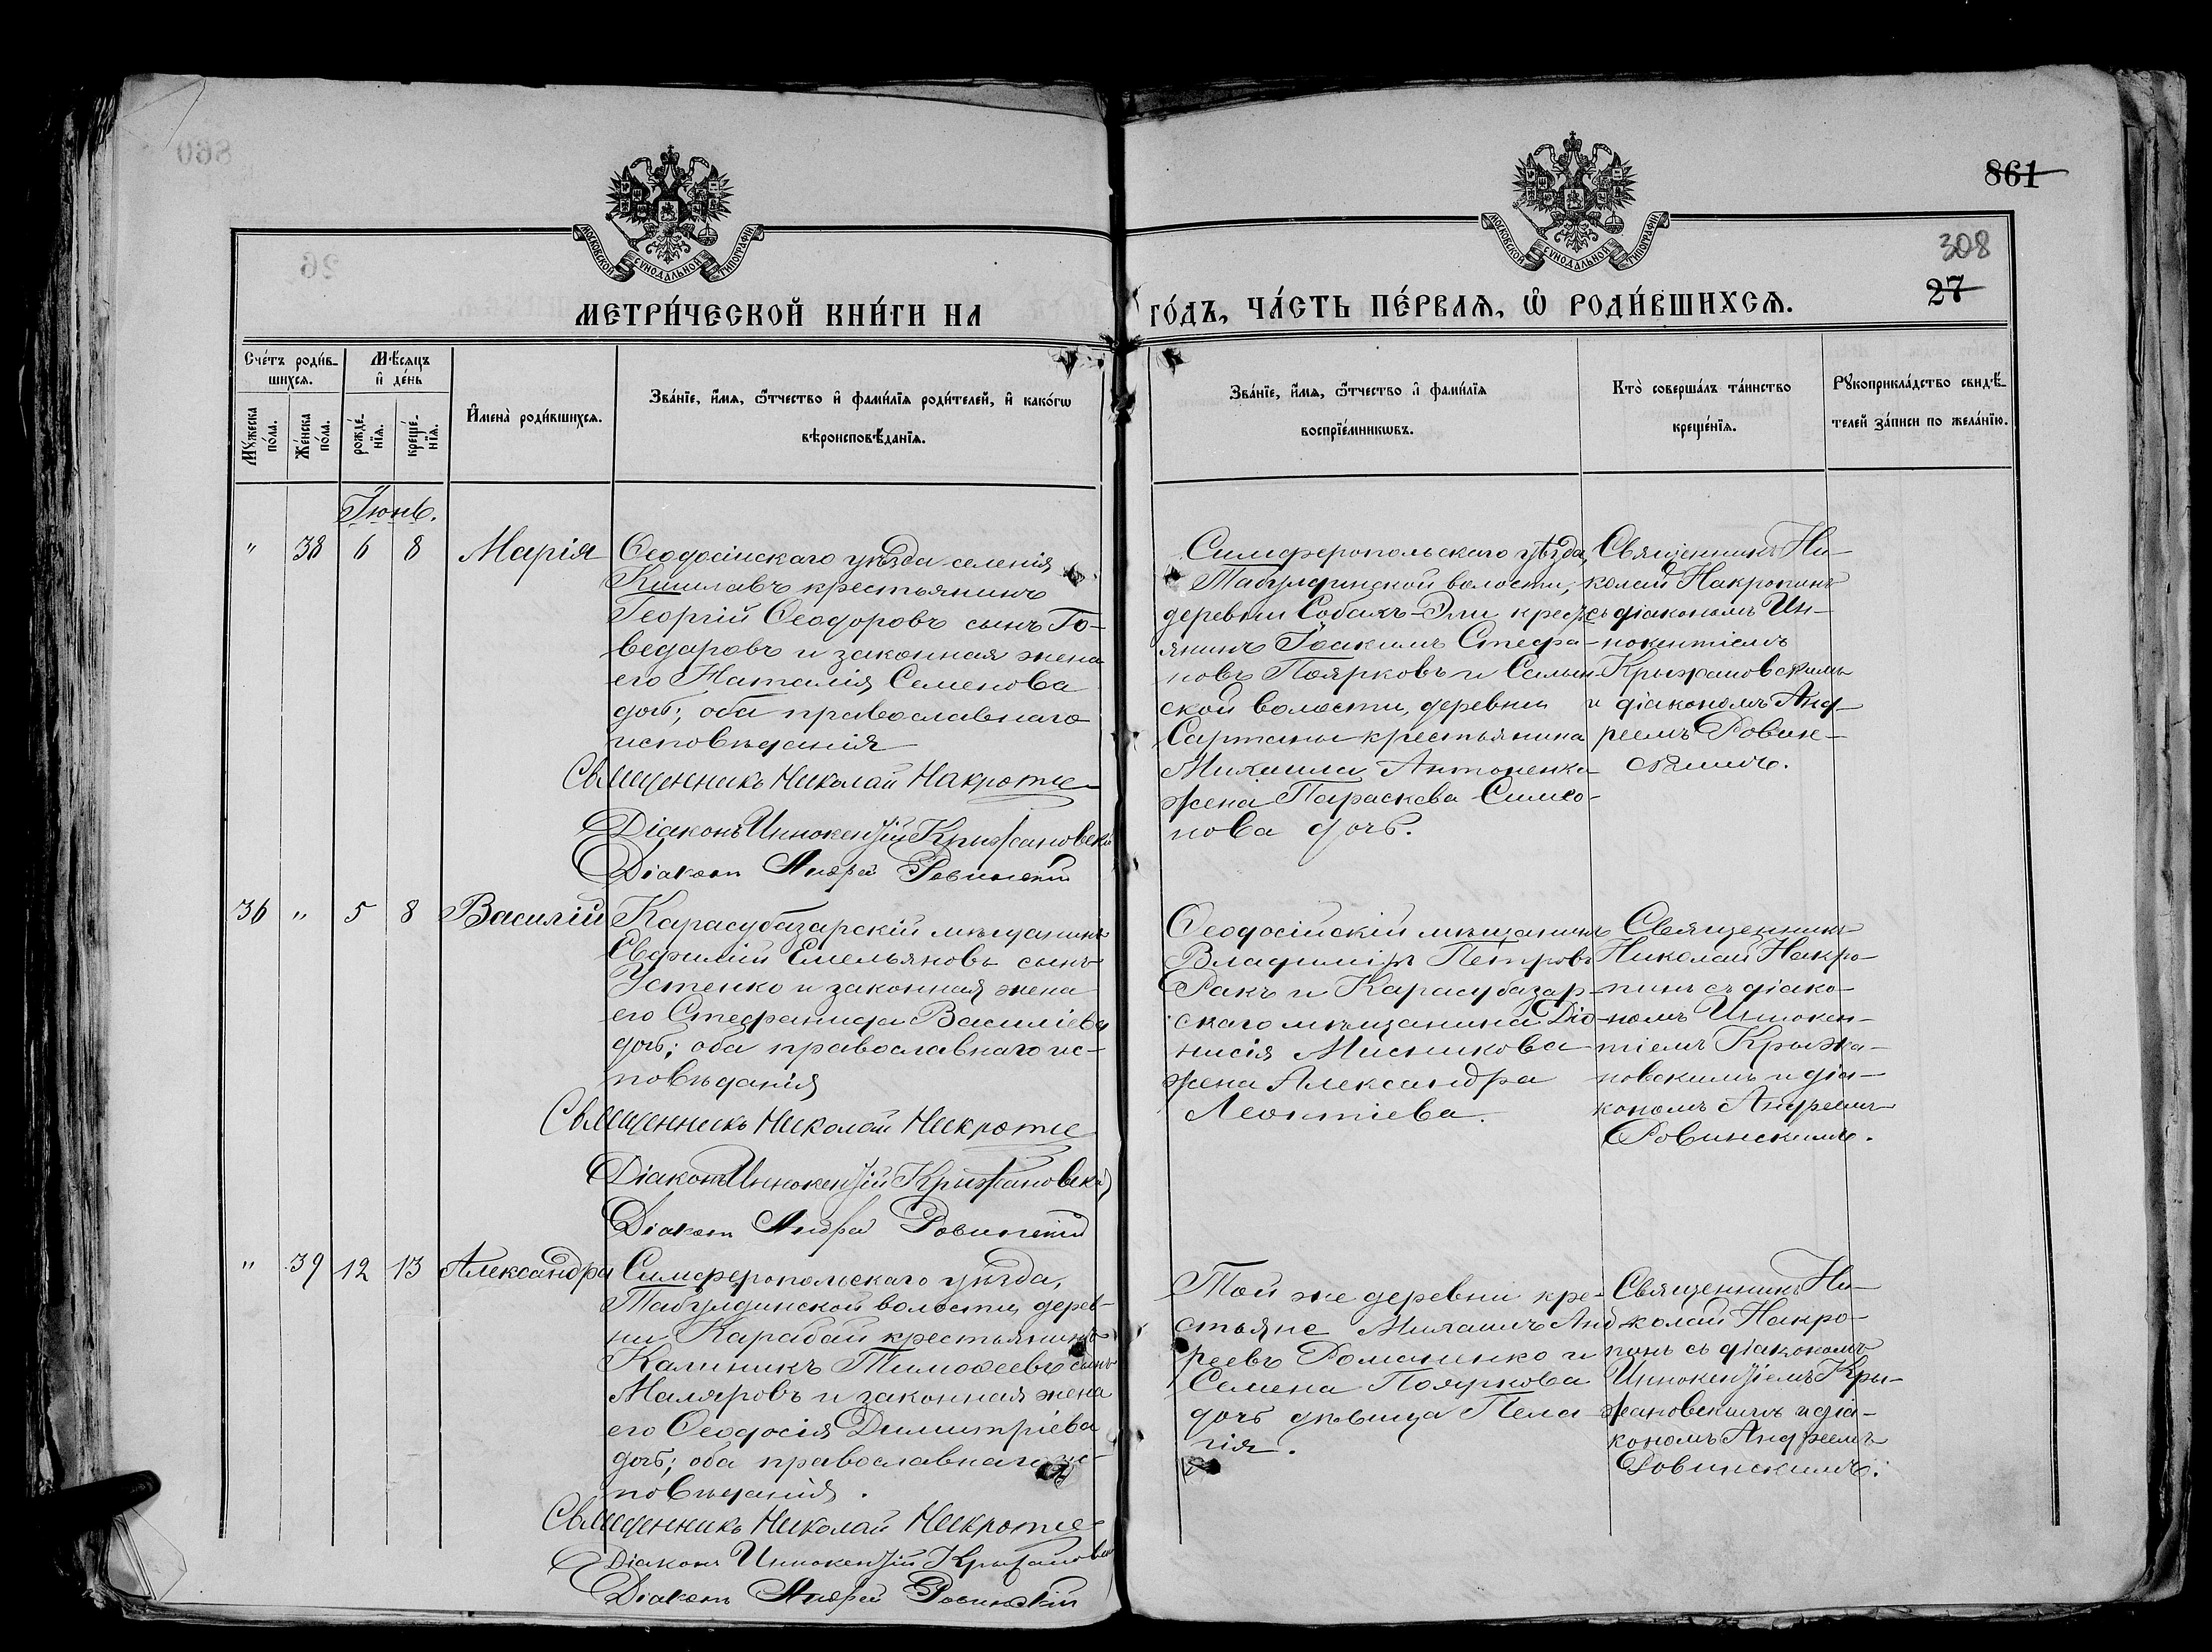 860
861
МОСКОВСКОЙ СУНОДАЛЬНОЙ ТИПОГРАФІИ
МОСКОВСКОЙ СУНОДАЛЬНОЙ ТИПОГРАФІИ
26
308
27
МЕТРИ́ЧЕСКОЙ КНИ́ГИ НА
ГО́ДЪ, ЧА́СТЬ ПЕ́РВАѦ, Ѽ РОДИ́ВШИХСѦ.
Сче́тъ роди́в-
шихсѧ.
Мѣ́сѧцъ
и҆ де́нь
Мꙋ́жеска
по́ла.
Же́нска
по́ла.
рожде́-
нїѧ.
креще́-
нїѧ.
И҆мена̀ роди́вшихсѧ.
Зва́нїе, и҆́мѧ, ѻ҆́тчество и҆ фами́лїѧ роди́телей, и҆ како́гѡ
вѣроисповѣ́данїѧ.
Зва́нїе, и҆́мѧ, ѻ҆́тчество и҆ фами́лїѧ
воспрїе́мникѡвъ.
Кто̀ соверша́лъ та́инство
креще́нїѧ.
Рꙋкоприкла́дство свидѣ́-
телей за́писи по жела́нїю.
Іюнь.
" 38 6 8 Марія
Ѳеодосійскаго уѣзда селенія
Кишлавъ крестьянинъ
Георгій Ѳеодоровъ сынъ Го-
ведаровъ и законная жена
его Наталія Семенова
дочь; оба православнаго
исповѣданія
Священникъ Николай
Діаконъ Иннокентій Крыжановскій
Діаконъ Андрей Ровинскій
Симферопольскаго уѣзда,
Табулдинской волости,
деревни Собакъ-Эли крестья-
янинъ Іоакимъ Стефа-
новъ Поярковъ и Салын-
ской волости, деревни
Сартаны крестьянина
Михаила Антоненко
жена Параскева Симео-
нова дочь.
Священникъ Ни-
колай Накропинъ
съ діакономъ Ин-
нокентіемъ
Крыжановскимъ
и діакономъ Анд-
реемъ Ровин-
скимъ.
36 " 5 8 Василій
Карасубазарскій мѣщанинъ
Евфимій Емельяновъ сынъ
Устенко и законная жена
его Стефанида Василіева
дочь; оба православнаго ис-
повѣданія
Священникъ Николай
Діаконъ Иннокентій Крыжановскій
Діаконъ Андрей Ровинскій
Ѳеодосійскій мѣщанинъ
Владиміръ Петровъ
Ракъ и Карасубазар-
скаго мѣщанина Діо-
нисія Мисникова
жена Александра
Леонтіева.
Священникъ
Николай Накро-
пинъ съ діако-
номъ Иннокен-
тіемъ Крыжа-
новскимъ и діа-
кономъ Андреемъ
Ровинскимъ.
" 39 12 13 Александра
Симферопольскаго уѣзда,
Табулдинской волости, дерев-
ни Карабай крестьянинъ
Калиникъ Тимоѳеевъ сынъ
Маляровъ и законная жена
его Ѳеодосія Димитріева
дочь; оба православнаго ис-
повѣданія.
Священникъ Николай
Діаконъ Иннокентій Крыжановскій
Діаконъ Андрей Ровинскій
Той же деревни кре-
стьяне Михаилъ Анд-
реевъ Романенко и
Семена Пояркова
дочь дѣвица Пела-
гія.
Священникъ Ни-
колай Накро-
пинъ съ діакономъ
Иннокентіемъ Кры-
жановскимъ и діа-
кономъ Андреемъ
Ровинскимъ.